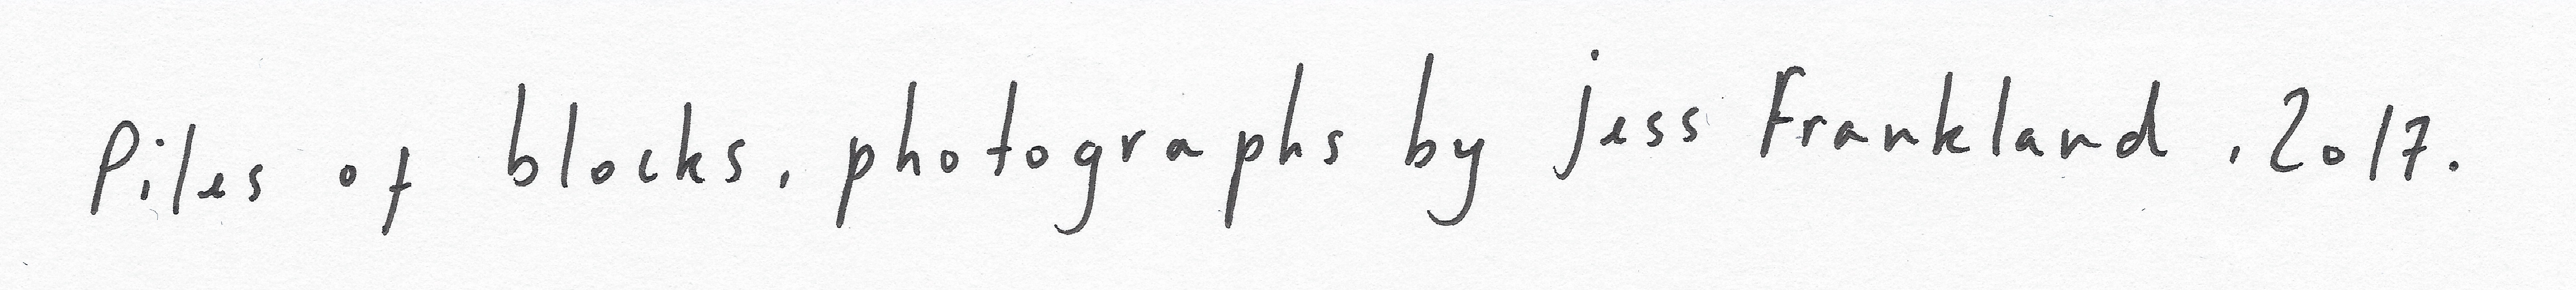 Piles of blocks, photographs by jess Frankland, 2017.